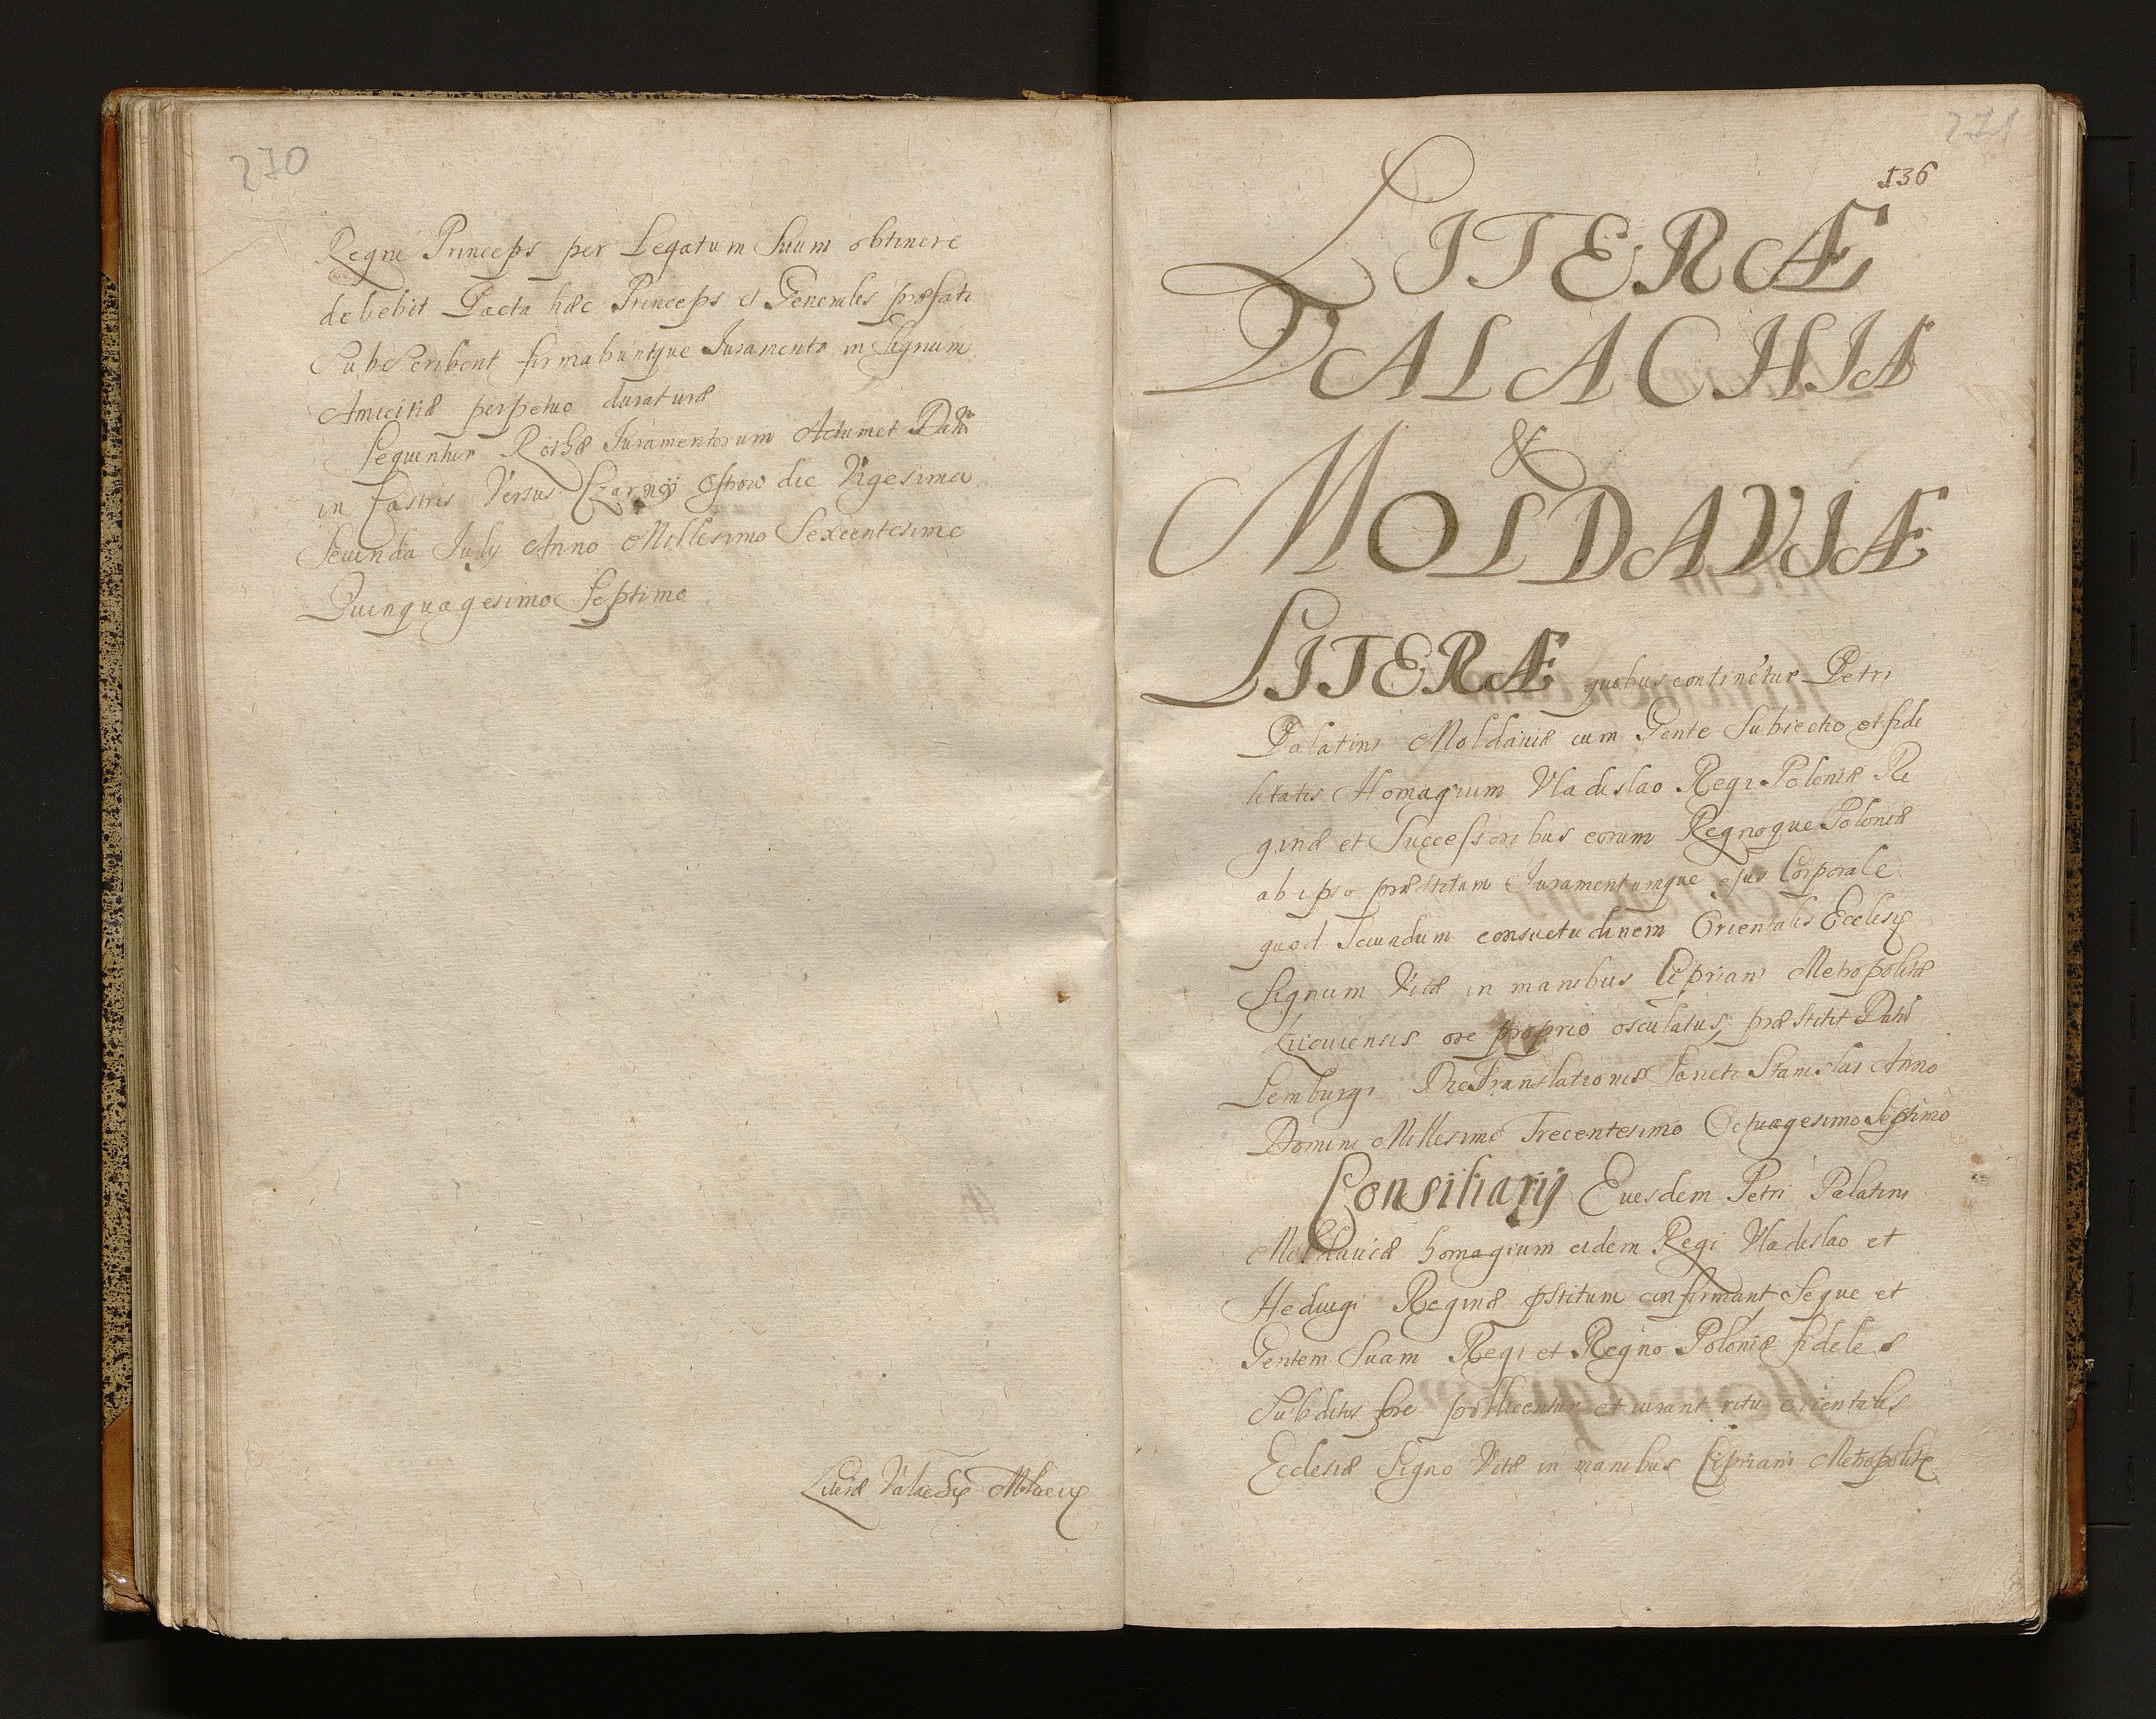 270
Regni Princeps per Legatum Suum obtinere
debebit Pacta hæc Princeps et Generales præfati
Subscribent firmabuntque Iuramento in Signum
Amicitiæ perpetuo duraturæ
Sequntur Rothæ Iuramentorum Actum et
in Castris Versus die Vigesima
Secunda July Anno Millesimo Sexcentesimo
Quinquagesimo Septimo
Literæ
271
136
LITERÆ
VALACHIÆ
&
MOLDAVIÆ
LITERÆ quibus continetur Petri
Palatini Moldaviæ cum Gente Subiectio et fide
litatis Homagium Vladislao Regi Poloniæ Re
ginæ et Successoribus eorum Regnoque Poloniæ
ab ipso præstitum Iuramentumque ejus Corporale
quod Secundum consuetudinem Orientalis Ecclesię
Signum Vitæ in manibus Cipriani Metropolitæ
Kiioviensis ore proprio osculatus, præstitit
Lemburgi Die Translationis Sancti Stanislai Anno
Domini Millesimo Trecentesimo Octuagesimo Septimo
Consiliarij Euesdem Petri Palatini
Moldaviæ homagium eidem Regi Vladislao et
Heduigi Reginæ pstitum confirmant Seque et
Gentem Suam Regi et Regno Poloniæ fideles
Subditos fore pollicentur et iurant ritu orientalis
Ecclesiæ Signo Vitæ in manibus Cipriani Metropolitę